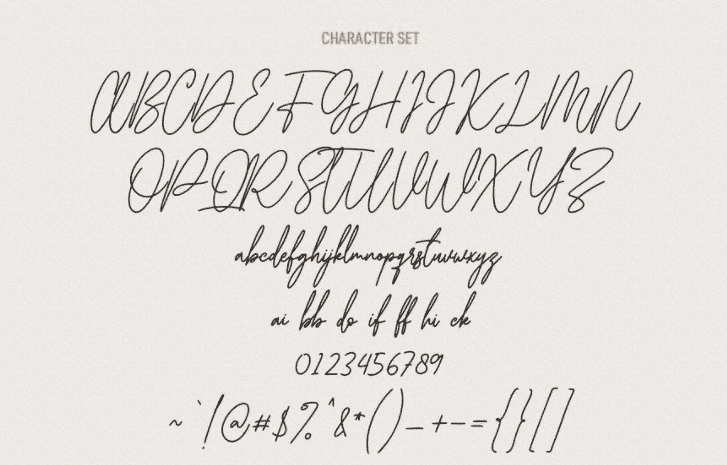 CHARACTER SET
ABCDEFGHIJKLMN
OPQRSTUVWXYZ
abcdefghijklmnopqrstuvwxyz
ai bb do if ff hi ck
0123456789
~`!@#$%^&*()_+-={}[]